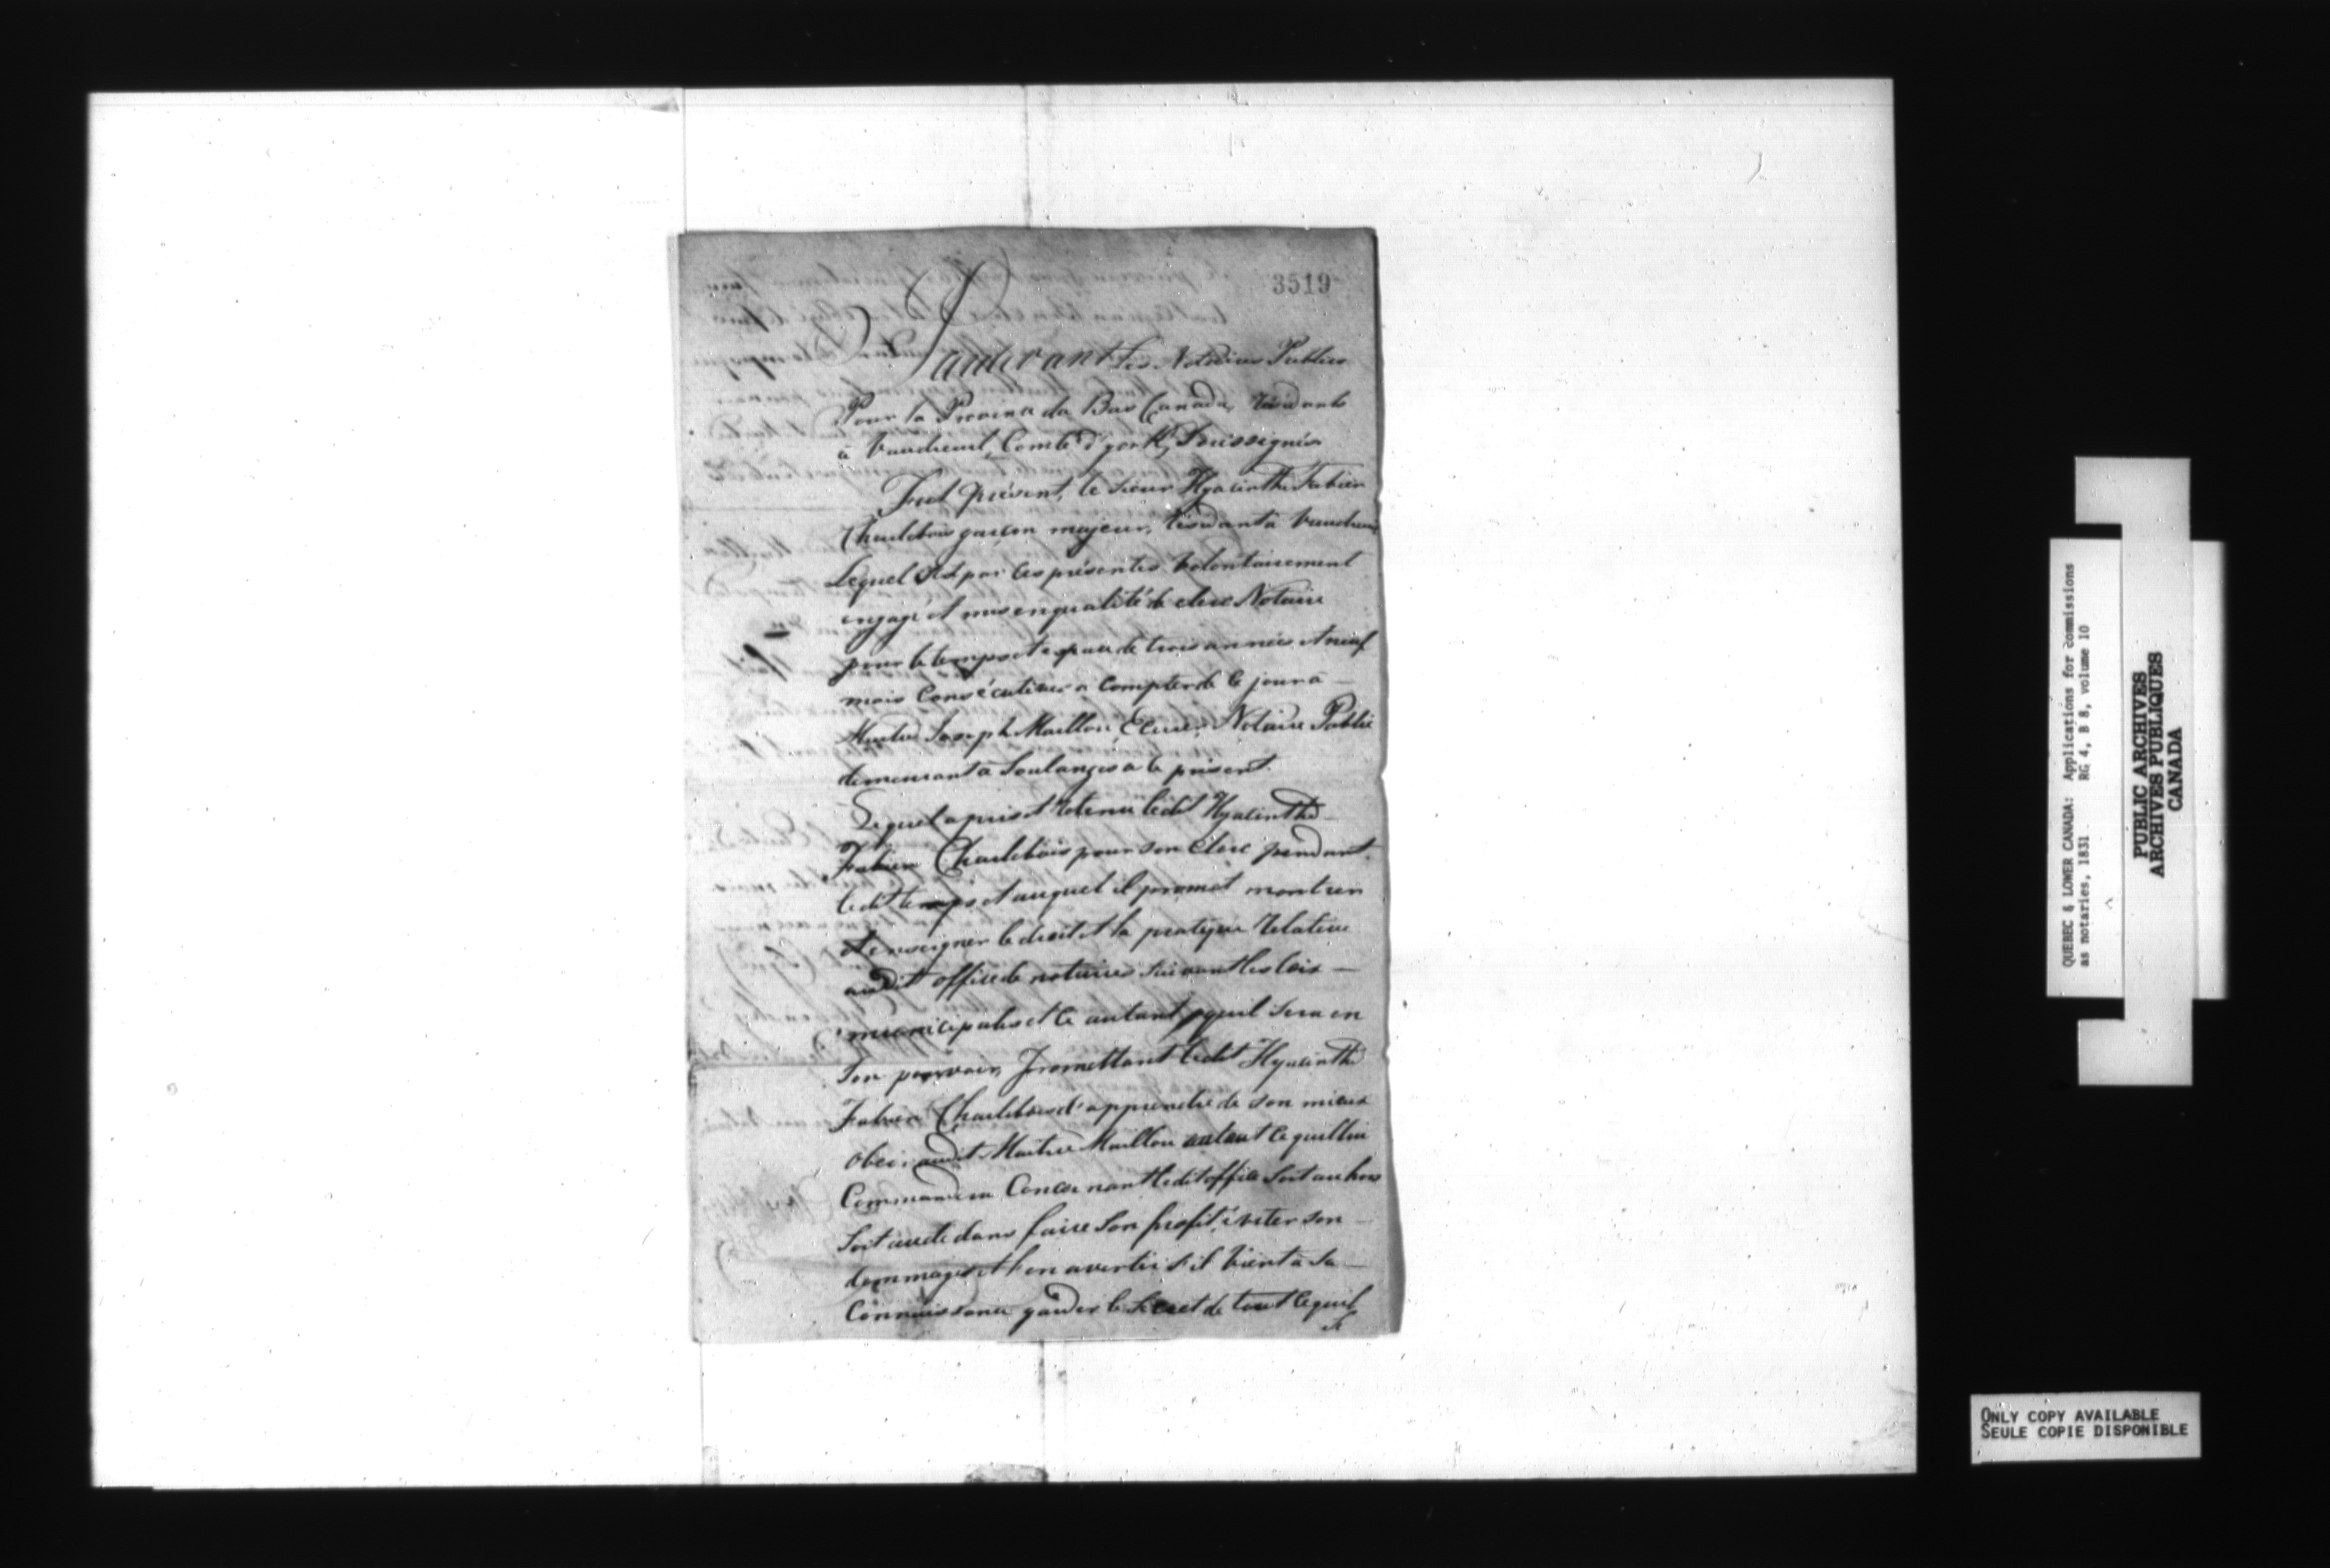 3519
Pardevant Les Notaires Publics
Pour la Province du Bas Canada, Résidants
à Vaudreuil, Comté d'york, Soussignés
Fut présent, le Sieur Hyacinthe Fabien
Charlebois garçon majeur, résidant à Vaudreuil
Lequel s'est par les présentes volontairement
engagé et mis en qualité de clerc Notaire
pour le temps et espace de trois années et neuf
mois consécutives a compter de ce jour à —
Maitre Joseph Maillou, Ecuier, Notaire Public
demeurant à Soulanges a ce présent.
Lequel a pris et retenu ledit Hyacinthe —
Fabien Charlebois pour son clerc pendant
ledit temps et auquel il promet montrer
et enseigner le droit et la pratique relative
audit office de notaires suivant les lois —
municipales et ce autant qu'il sera en
son pouvoir, Promettant ledit Hyacinthe
Fabien Charlebois d'apprendre de son mieux
obeir audit Maitre Maillou en tout ce qu'il lui
Commandera Concernant ledit office Soit au hors
Soit au dedans faire Son profit, éviter son —
dommages et l'en avertir s'il vient à sa —
Connaissance garder le Secret de tout ce qu'il
QUEBEC & LOWER CANADA: Applications for commissions
as notaries, 1831 RG 4, B 8, volume 10
PUBLIC ARCHIVES
ARCHIVES PUBLIQUES
CANADA
ONLY COPY AVAILABLE
SEULE COPIE DISPONIBLE